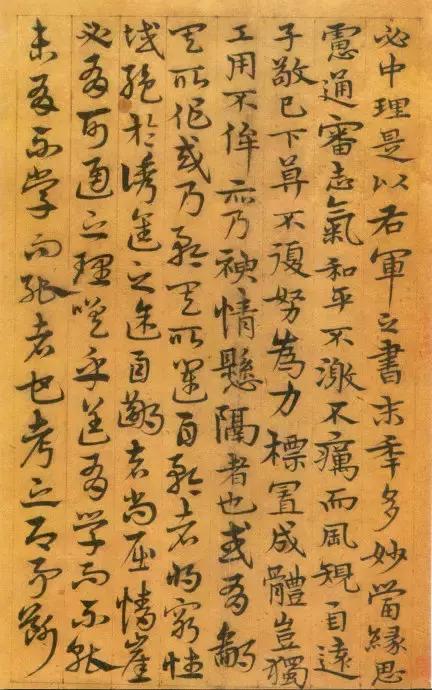 必中理是以右軍之書末年多妙當緣思
慮通審志氣和平不激不癘而風規自遠
子敬已下莫不鼓努為力標置成體豈獨
工用不侔亦乃神情懸隔者也或有鄙
其所作或乃矜其所運自矜者將窮性
域絕於誘進之途自鄙者尚屈情崖
必有可通之理嗟乎蓋有學而不能
未有不學而能者也考之即事斷